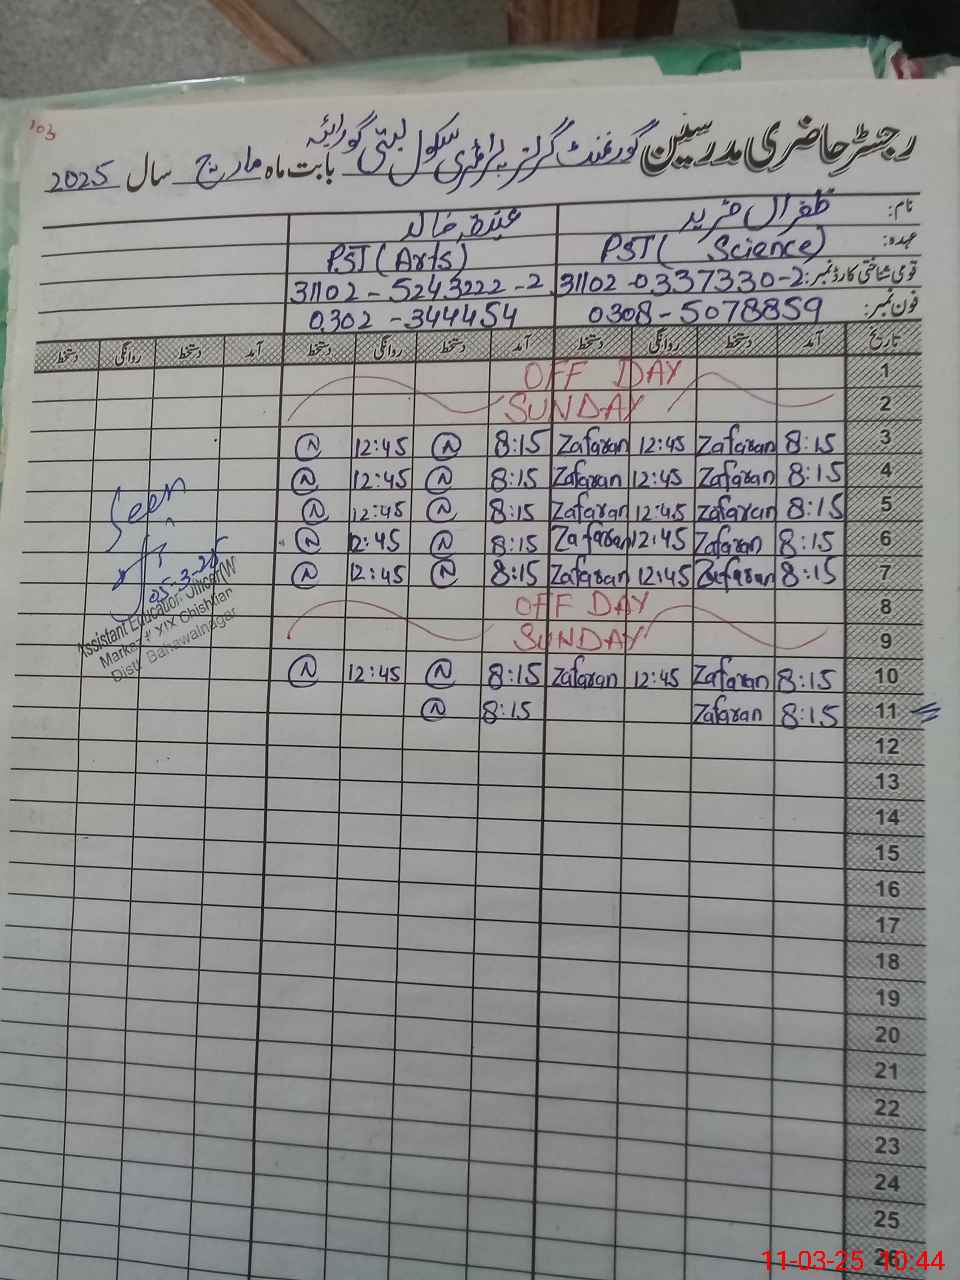 103
رجسٹر حاضری مدرسین گورنمنٹ گرلز پرائمری سکول بستی گورایہ بابت ماہ مارچ سال 2025
نام: ظفراں فرید خالد
عہدہ: PST ( Science) PST (Arts)
قومی شناختی کارڈ نمبر: 31102-0337330-2 31102-5243222-2
فون نمبر: 0308-5078859 0302-344454
تاریخ آمد دستخط روانگی دستخط آمد دستخط روانگی دستخط آمد دستخط روانگی دستخط
1 OFF DAY
2 SUNDAY
3 8:15 Zafaran 12:45 Zafaran 8:15 N 12:45 N
4 8:15 Zafaran 12:45 Zafaran 8:15 N 12:45 N
5 8:15 Zafaran 12:45 Zafaran 8:15 N 12:45 N
6 8:15 Zafaran 12:45 Zafaran 8:15 N 12:45 N
7 8:15 Zafaran 12:45 Zafaran 8:15 N 12:45 N
8 OFF DAY
9 SUNDAY
10 8:15 Zafaran 12:45 Zafaran 8:15 N 12:45 N
11 8:15 Zafaran 8:15 N
12
13
14
15
16
17
18
19
20
21
22
23
24
25
26
Seen
05-3-25
Assistant Education Officer(W)
Markaz # XIX Chishtian
Distt. Bahawalnagar
11-03-25 10:44